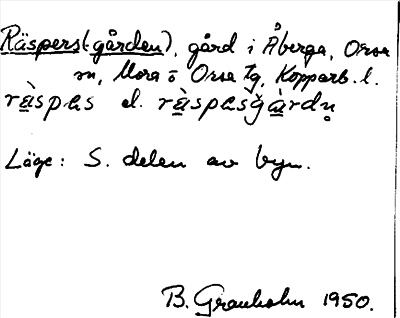 Räspers(-gården), gård i Åberga, Orsa
sn, Mora o Orsa tg, Kopparb. l.
ràspəs el. ràspəsgàrdn̥
Läge: S. delen av byn.
B. Granholm 1950.